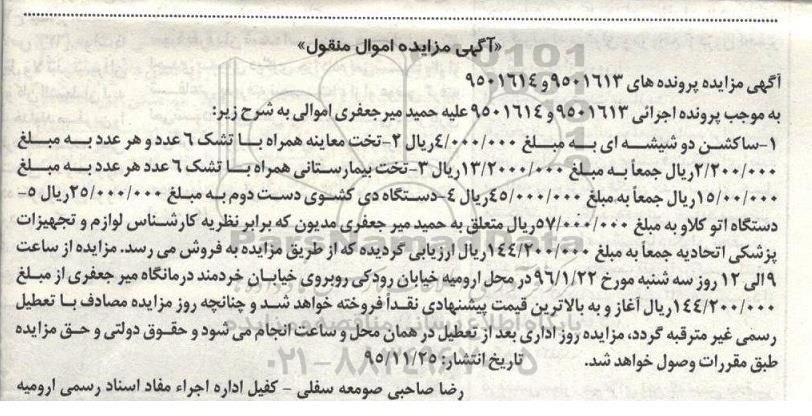 «آگهی مزایده اموال منقول»
آگهی مزایده پرونده های ۹۵۰۱۶۱۳ و ۹۵۰۱۶۱۴
به موجب پرونده اجرائی ۹۵۰۱۶۱۳ و ۹۵۰۱۶۱۴ علیه حمید میرجعفری اموالی به شرح زیر:
۱-ساکشن دو شیشه ای به مبلغ ۴/۰۰۰/۰۰۰ریال ۲-تخت معاینه همراه با تشک ۶ عدد و هر عدد به مبلغ
۲/۲۰۰/۰۰۰ریال جمعاً به مبلغ ۱۳/۲۰۰۰/۰۰۰ریال ۳-تخت بیمارستانی همراه با تشک ۶ عدد هر عدد به مبلغ
۱۵/۰۰/۰۰۰ریال جمعاً به مبلغ ۴۵/۰۰۰/۰۰۰ریال ۴-دستگاه دی کشوی دست دوم به مبلغ ۲۵/۰۰۰/۰۰۰ریال ۵-
دستگاه اتو کلاو به مبلغ ۵۷/۰۰۰/۰۰۰ریال متعلق به حمید میر جعفری مدیون که برابر نظریه کارشناس لوازم و تجهیزات
پزشکی اتحادیه جمعاً به مبلغ ۱۴۴/۲۰۰/۰۰۰ریال ارزیابی گردیده که از طریق مزایده به فروش می رسد. مزایده از ساعت
۹ الی ۱۲ روز سه شنبه مورخ ۹۶/۱/۲۲ در محل ارومیه خیابان رودکی روبروی خیابان خردمند درمانگاه میر جعفری از مبلغ
۱۴۴/۲۰۰/۰۰۰ریال آغاز و به بالاترین قیمت پیشنهادی نقداً فروخته خواهد شد و چنانچه روز مزایده مصادف با تعطیل
رسمی غیر مترقبه گردد، مزایده روز اداری بعد از تعطیل در همان محل و ساعت انجام می شود و حقوق دولتی و حق مزایده
طبق مقررات وصول خواهد شد. تاریخ انتشار: ۹۵/۱۱/۲۵
رضا صاحبی صومعه سفلی - کفیل اداره اجراء مفاد اسناد رسمی ارومیه
ParsNamadData